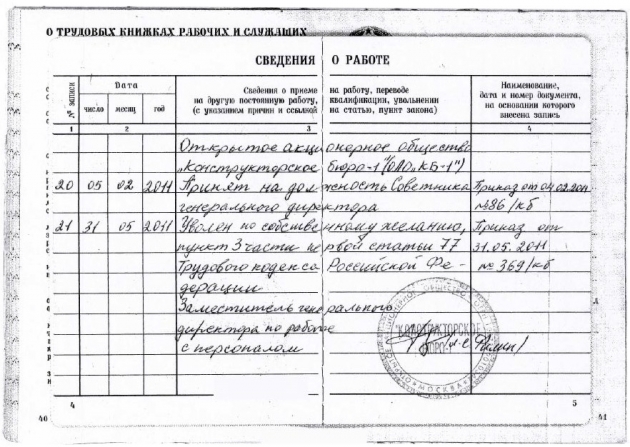 О ТРУДОВЫХ КНИЖКАХ РАБОЧИХ И СЛУЖАЩИХ
СВЕДЕНИЯ О РАБОТЕ
№ записи
Дата
число месяц год
Сведения о приеме на работу, переводе
на другую постоянную работу, квалификации, увольнении
(с указанием причин и ссылкой на статью, пункт закона)
Наименование,
дата и номер документа,
на основании которого
внесена запись
1 2 3 4
Открытое акционерное общество
"Конструкторское бюро-1" (ОАО "КБ-1")
20 05 02 2011 Принят на должность Советника Приказ от 04.02.2011
генерального директора №86/кб
21 31 05 2011 Уволен по собственному желанию, Приказ от
пункт 3 части первой статьи 77 31.05.2011
Трудового кодекса Российской Фе- № 369/кб
дерации
Заместитель генерального
директора по работе
с персоналом
"КОНСТРУКТОРСКОЕ
БЮРО-1"
МОСКВА
46 4 5 41